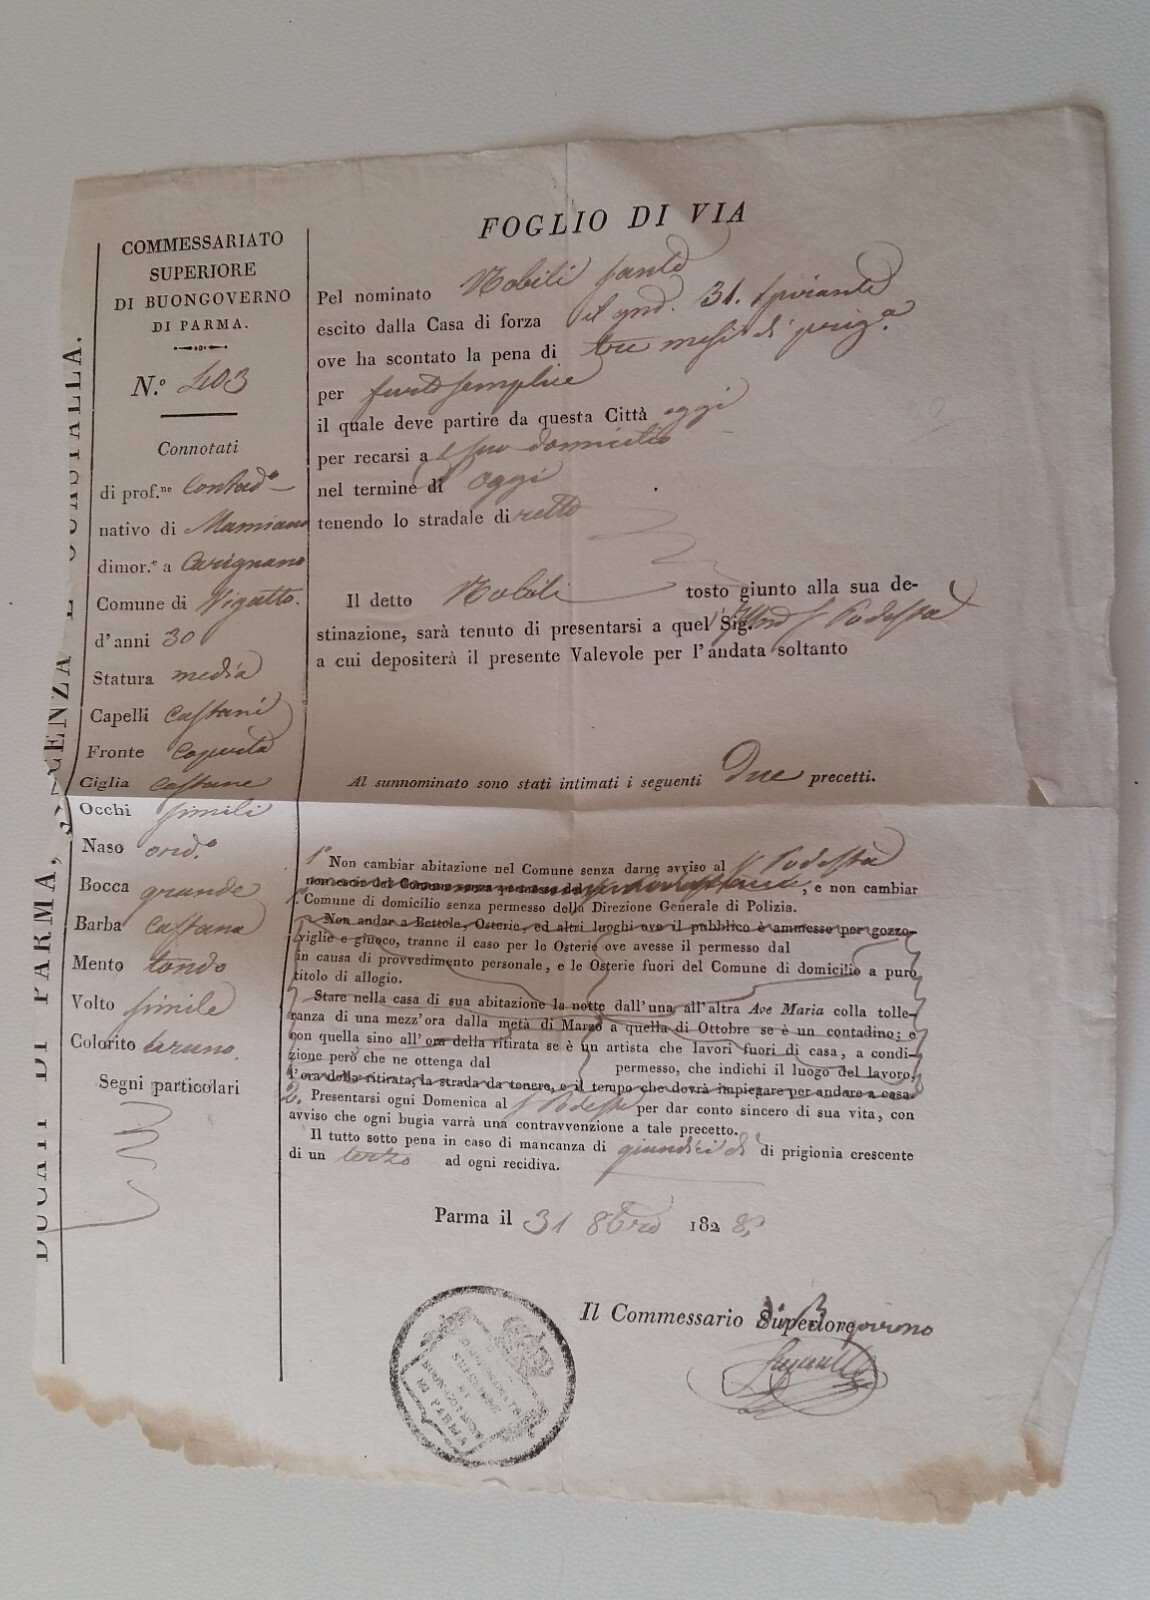 DUCATI DI PARMA, PIACENZA E GUASTALLA.
COMMESSARIATO
SUPERIORE
DI BUONGOVERNO
DI PARMA.
N.º 403
Connotati
di prof.ne Contad.e
nativo di Mamiano
dimor.e a Carignano
Comune di Vigatto.
d'anni 30
Statura media
Capelli castani
Fronte coperta
Ciglia castane
Occhi simili
Naso ord.o
Bocca grande
Barba castana
Mento tondo
Volto simile
Colorito bruno.
Segni particolari
FOGLIO DI VIA
Pel nominato Nobili Santo
escito dalla Casa di forza il gno. 31. spirante
ove ha scontato la pena di tre mesi di prig.a
per furto semplice
il quale deve partire da questa Città oggi
per recarsi a suo domicilio
nel termine di oggi
tenendo lo stradale diretto
Il detto Nobili tosto giunto alla sua de-
stinazione, sarà tenuto di presentarsi a quel Sig. Podestà
a cui depositerà il presente Valevole per l'andata soltanto
Al sunnominato sono stati intimati i seguenti Due precetti.
1º Non cambiar abitazione nel Comune senza darne avviso al Sr Podestà
non escir del Comune senza permesso del, e non cambiar
Comune di domicilio senza permesso della Direzione Generale di Polizia.
Non andar a Bettole, Osterie, ed altri luoghi ove il pubblico è ammesso per gozzo-
viglie e giuoco, tranne il caso per le Osterie ove avesse il permesso dal
in causa di provvedimento personale, e le Osterie fuori del Comune di domicilio a puro
titolo di allogio.
Stare nella casa di sua abitazione la notte dall'una all'altra Ave Maria colla tolle-
ranza di una mezz'ora dalla metà di Marzo a quella di Ottobre se è un contadino; e
con quella sino all'ora della ritirata se è un artista che lavori fuori di casa, a condi-
zione però che ne ottenga dal permesso, che indichi il luogo del lavoro,
l'ora della ritirata, la strada da tenere, e il tempo che dovrà impiegare per andare a casa.
2. Presentarsi ogni Domenica al Sr Podestà per dar conto sincero di sua vita, con
avviso che ogni bugia varrà una contravvenzione a tale precetto.
Il tutto sotto pena in caso di mancanza di quindici dì di prigionia crescente
di un terzo ad ogni recidiva.
Parma il 31 8bre 1828.
Il Commessario Superiore di B. governo
COMMESSARIATO
SUPERIORE
DI
BUONGOVERNO
DI PARMA